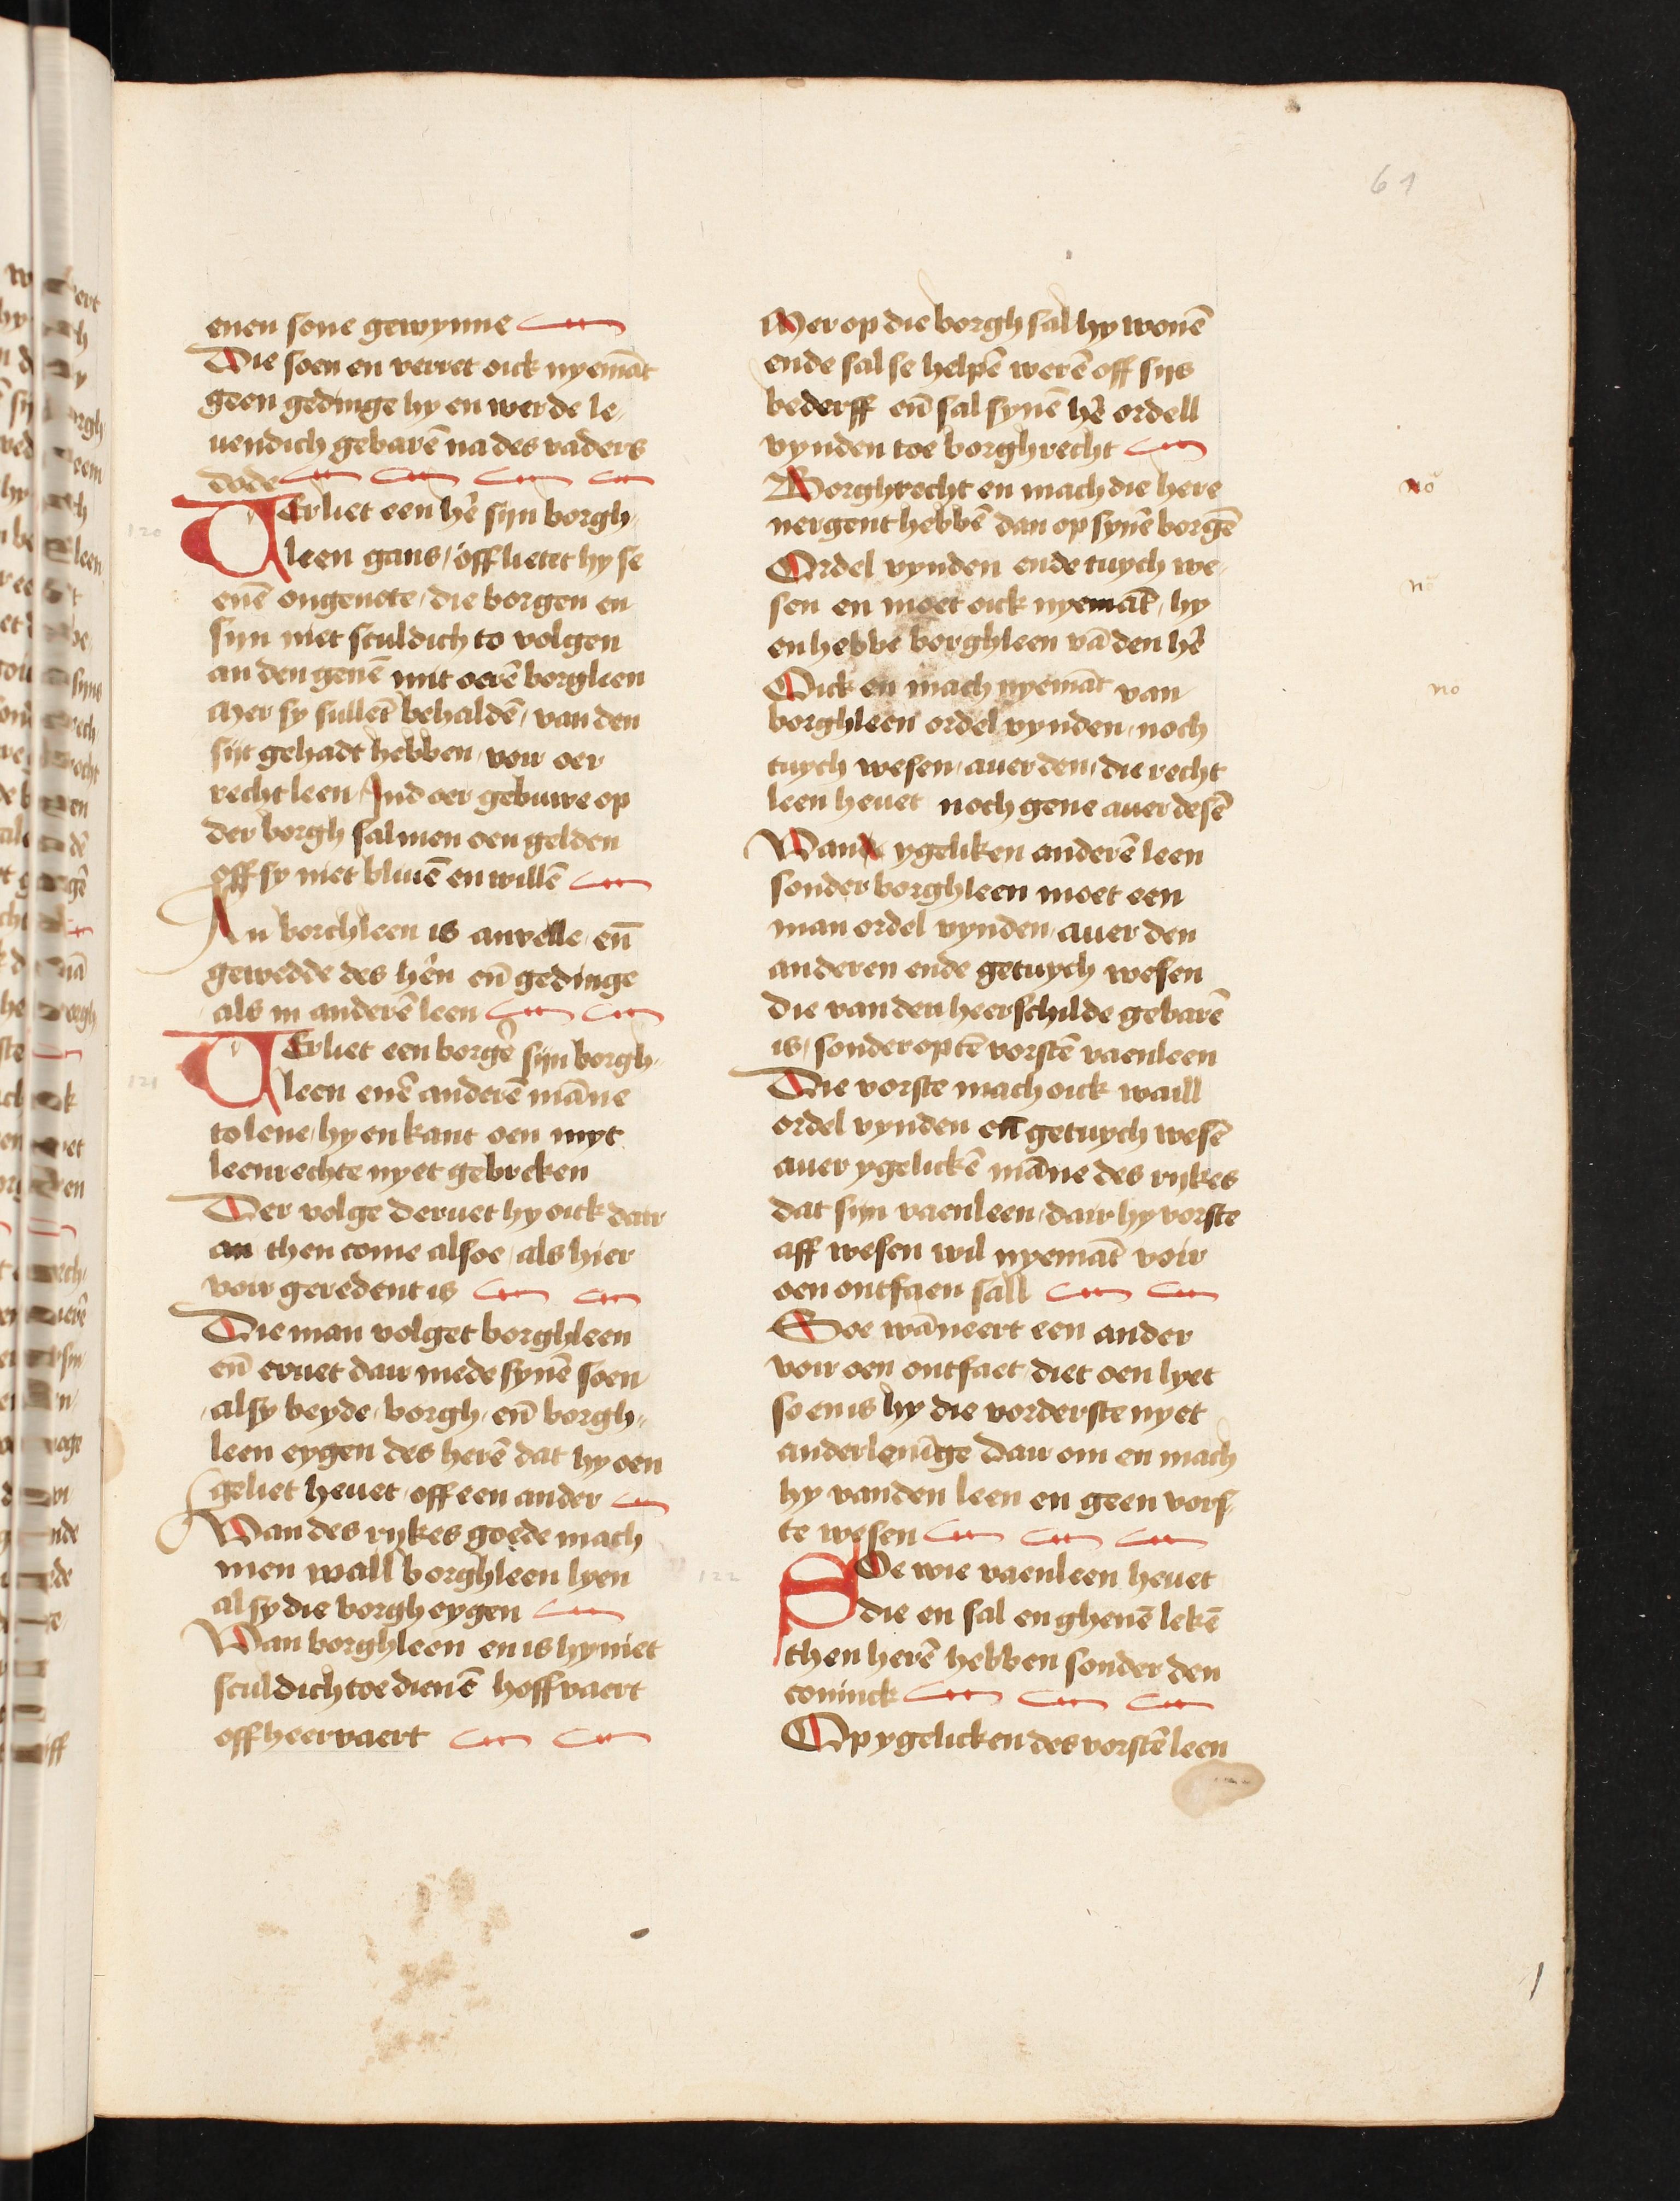 61
enen sone gewynne
Die soen en verret oick nyemāt
geen gedinge hy en werde le
uendich gebarē na des vaders
dode
120
VErliet een hē sijn borgh
leen gans / off lietet hy se
enē ongenote / die borgen en
sijn niet sculdich to volgen
an den genē mit oerē borgleen
Mer sy sullēt behaldē / van den
sijt gehadt hebben / voir oer
recht leen Ind oer gebuwe op
der borgh sal men oen gelden
off sy niet bliuē en willē
An borchleen is anvelle / eñ
gewedde des hēn eñ gedinge
als in anderē leen
121
VErliet een borgē sijn borgh
leen enē anderē māne
to lene / hy en kant oen myt
leenrechte nyet gebreken
Der volge deruet hy oick datt
an then come alsoe / als hier
voir geredent is
Die man volget borghleen
eñ eruet dair mede synē soen
alsy beyde / borgh / eñ borgh
leen eygen des herē dat hy oen
geliet heuet / off een ander
Van des rijkes goede mach
men wall borghleen lyen
al sy die borgh eygen
Van borghleen en is hy niet
sculdich toe dienē hoffvaert
off heervaert
Mer op die borgh sal hy wonē
ende sal se helpē werē off sijs
bederff eñ sal synē hē ordell
vynden toe borghrecht
Borghrecht en mach die here
nergent hebbē dan op synē borgē
Ordel vynden ende tuych we
sen en moet oick nyemāt / hy
en hebbe borghleen vā den hē
Oick en mach nyemāt van
borghleen ordel vynden / noch
tuych wesen / auer den / die recht
leen heuet noch gene auer desē
Van ygeliken anderē leen
sonder borghleen moet een
man ordel vynden / auer den
anderen ende getuych wesen
die van den heerschilde gebarē
is / sonder optē vorstē vaenleen
Die vorste mach oick waill
ordel vynden eñ getuych wesē
auer ygelickē māne des rijkes
dat sijn vaenleen / dair hy vorste
aff wesen wil nyemāt voir
oen ontfaen sall
Soe wāneert een ander
voir oen ontfaet / diet oen lyet
so en is hy die vorderste nyet
anderlenīge Dair om en mach
hy vanden leen en geen vors
te wesen
122
SOe wie vaenleen heuet
die en sal en ghenē lekē
then herē hebben sonder den
coninck
Op ygelicken des vorstē leen
no
no
no